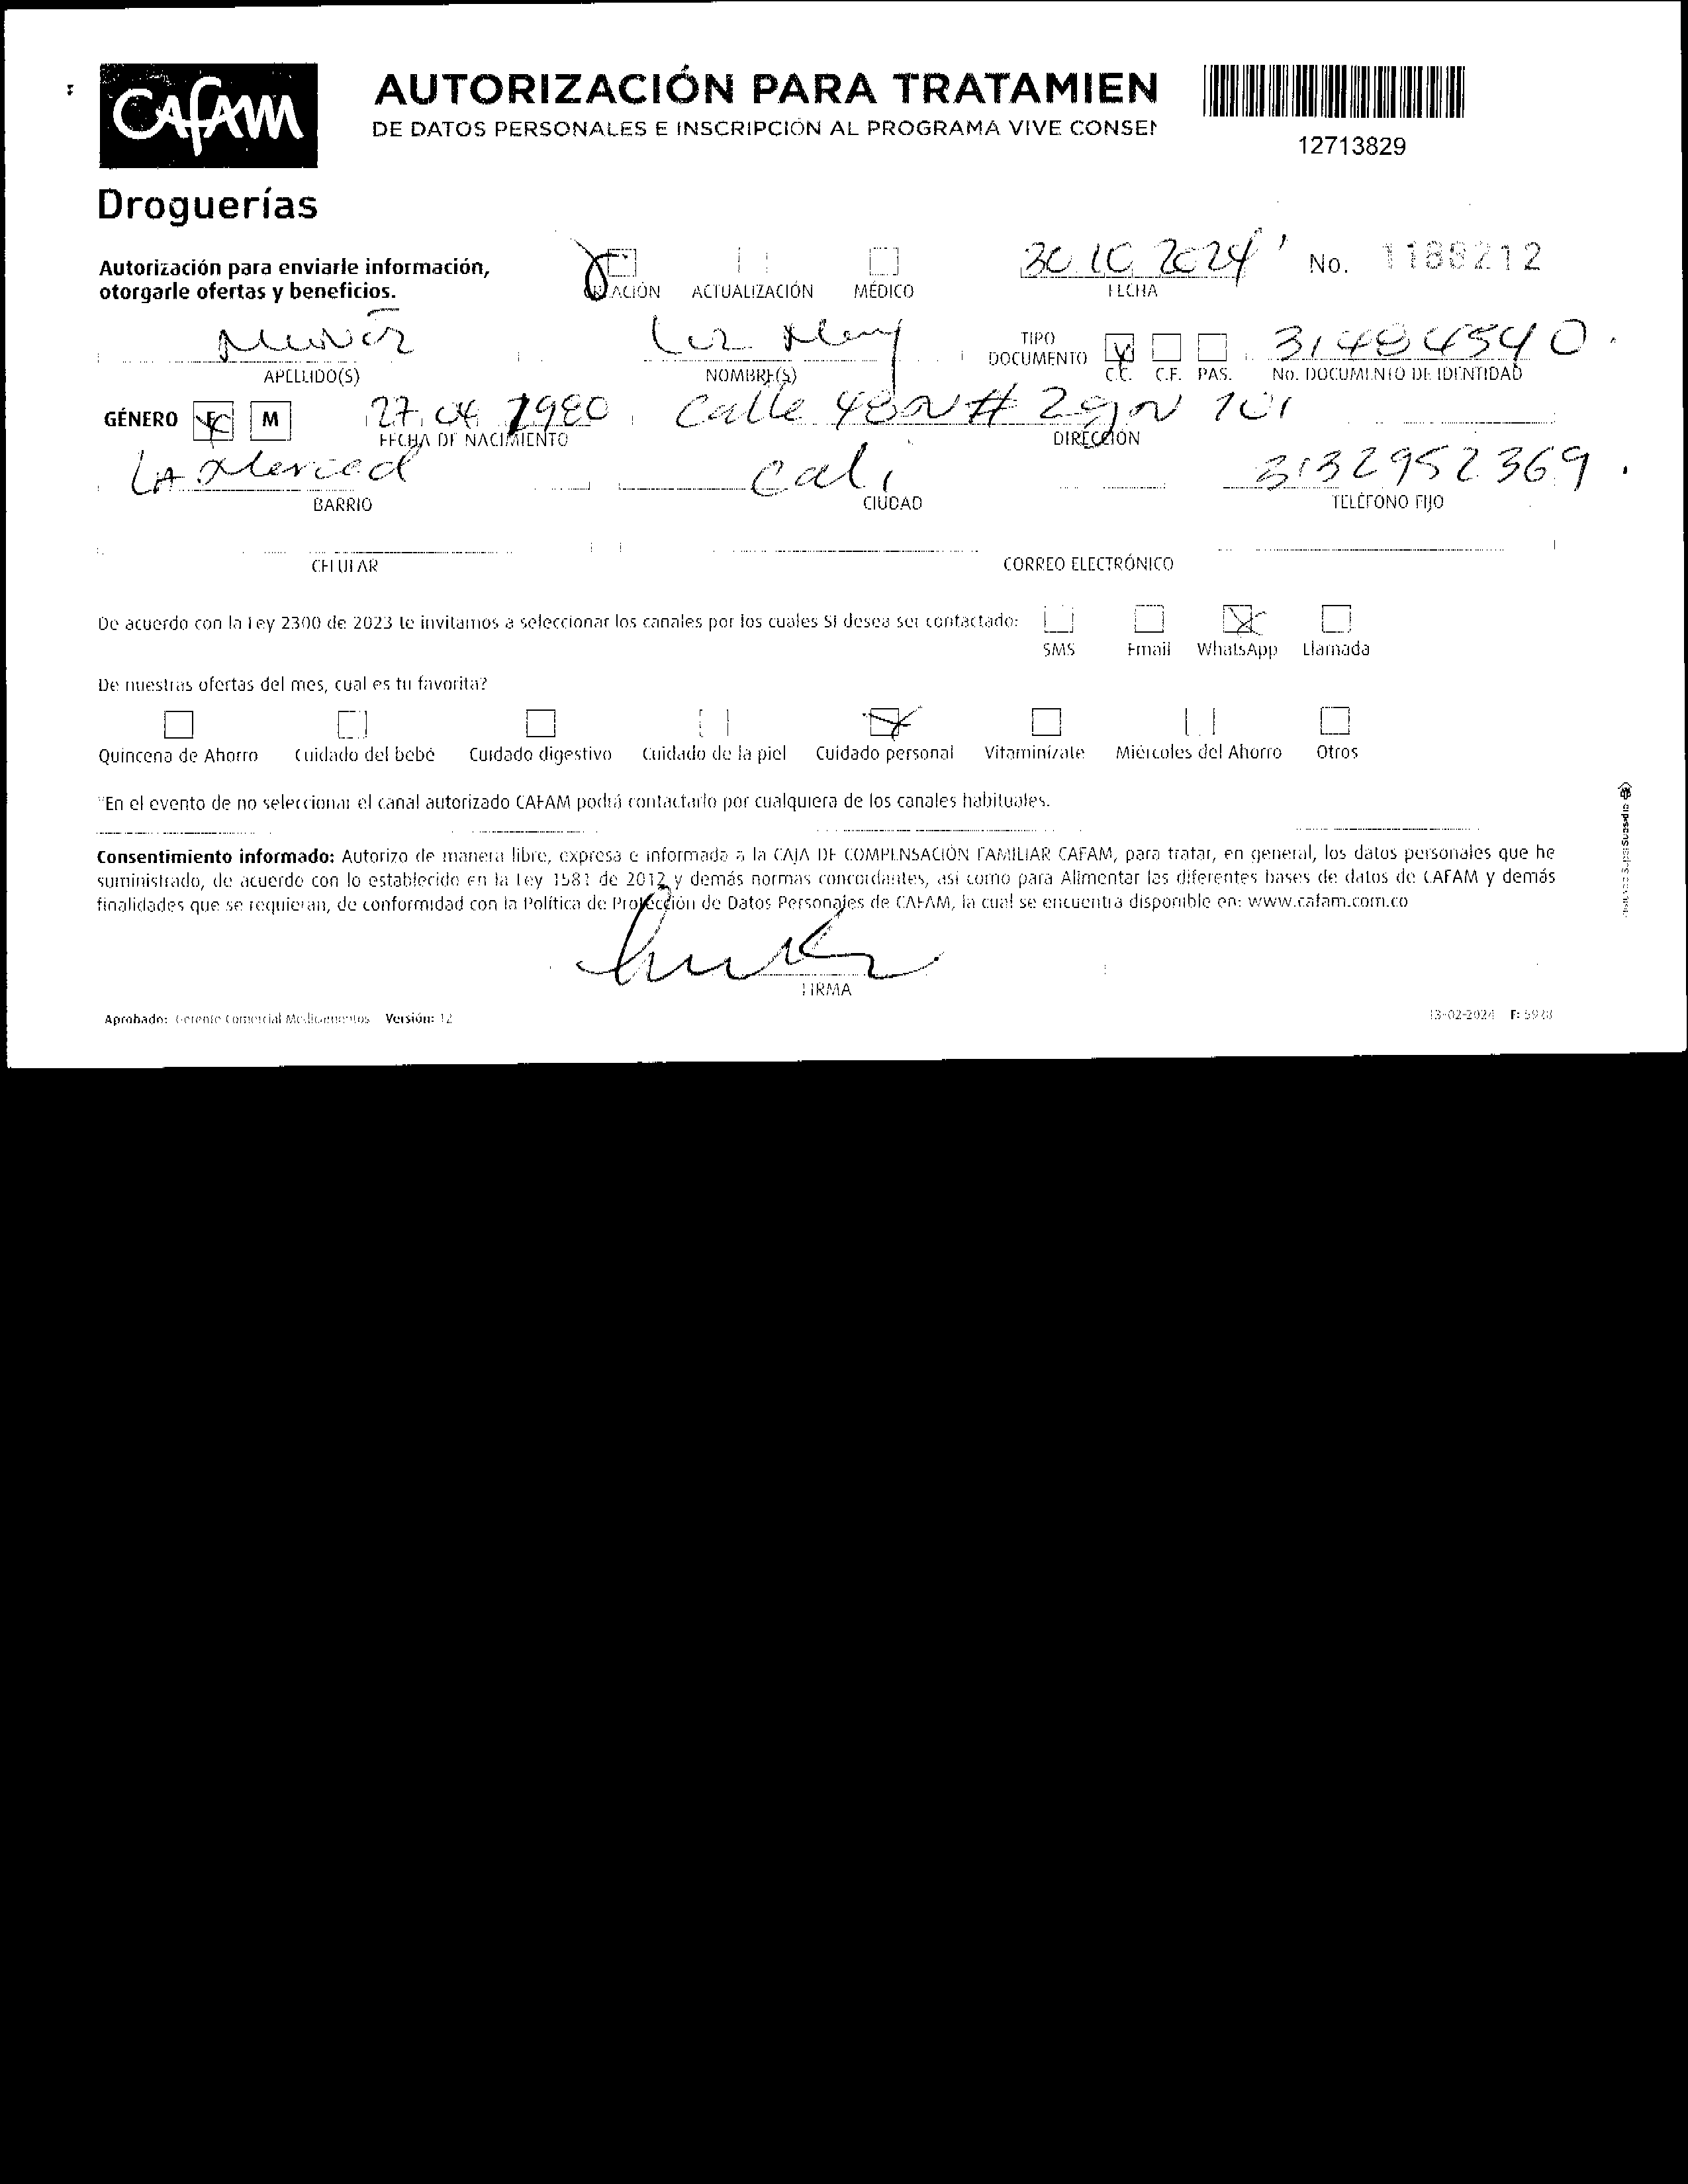 CAFAM
AUTORIZACIÓN PARA TRATAMIEN
DE DATOS PERSONALES E INSCRIPCIÓN AL PROGRAMA VIVE CONSEN
12713829
Droguerías
Autorización para enviarle información,
otorgarle ofertas y beneficios.
CREACIÓN ACTUALIZACIÓN MÉDICO
30 10 2024 No. 1188212
FECHA
Muñoz Luz Mery TIPO DOCUMENTO 31484540
APELLIDO(S) NOMBRE(S) C.C. C.E. PAS. No. DOCUMENTO DE IDENTIDAD
GÉNERO F M 27 04 1980 Calle 48N # 29N 101
FECHA DE NACIMIENTO DIRECCIÓN
LA Merced Cali 3132952369
BARRIO CIUDAD TELÉFONO FIJO
CELULAR CORREO ELECTRÓNICO
De acuerdo con la Ley 2300 de 2023 te invitamos a seleccionar los canales por los cuales SI desea ser contactado:
SMS Email WhatsApp Llamada
De nuestras ofertas del mes, cual es tu favorita?
Quincena de Ahorro Cuidado del bebé Cuidado digestivo Cuidado de la piel Cuidado personal Vitamínizate Miércoles del Ahorro Otros
"En el evento de no seleccionar el canal autorizado CAFAM podrá contactarlo por cualquiera de los canales habituales.
Consentimiento informado: Autorizo de manera libre, expresa e informada a la CAJA DE COMPENSACIÓN FAMILIAR CAFAM, para tratar, en general, los datos personales que he
suministrado, de acuerdo con lo establecido en la Ley 1581 de 2012 y demás normas concordantes, así como para Alimentar las diferentes bases de datos de CAFAM y demás
finalidades que se requieran, de conformidad con la Política de Protección de Datos Personales de CAFAM, la cual se encuentra disponible en: www.cafam.com.co
FIRMA
Aprobado: Gerente Comercial Medicamentos Versión: 12
13-02-2024 F: